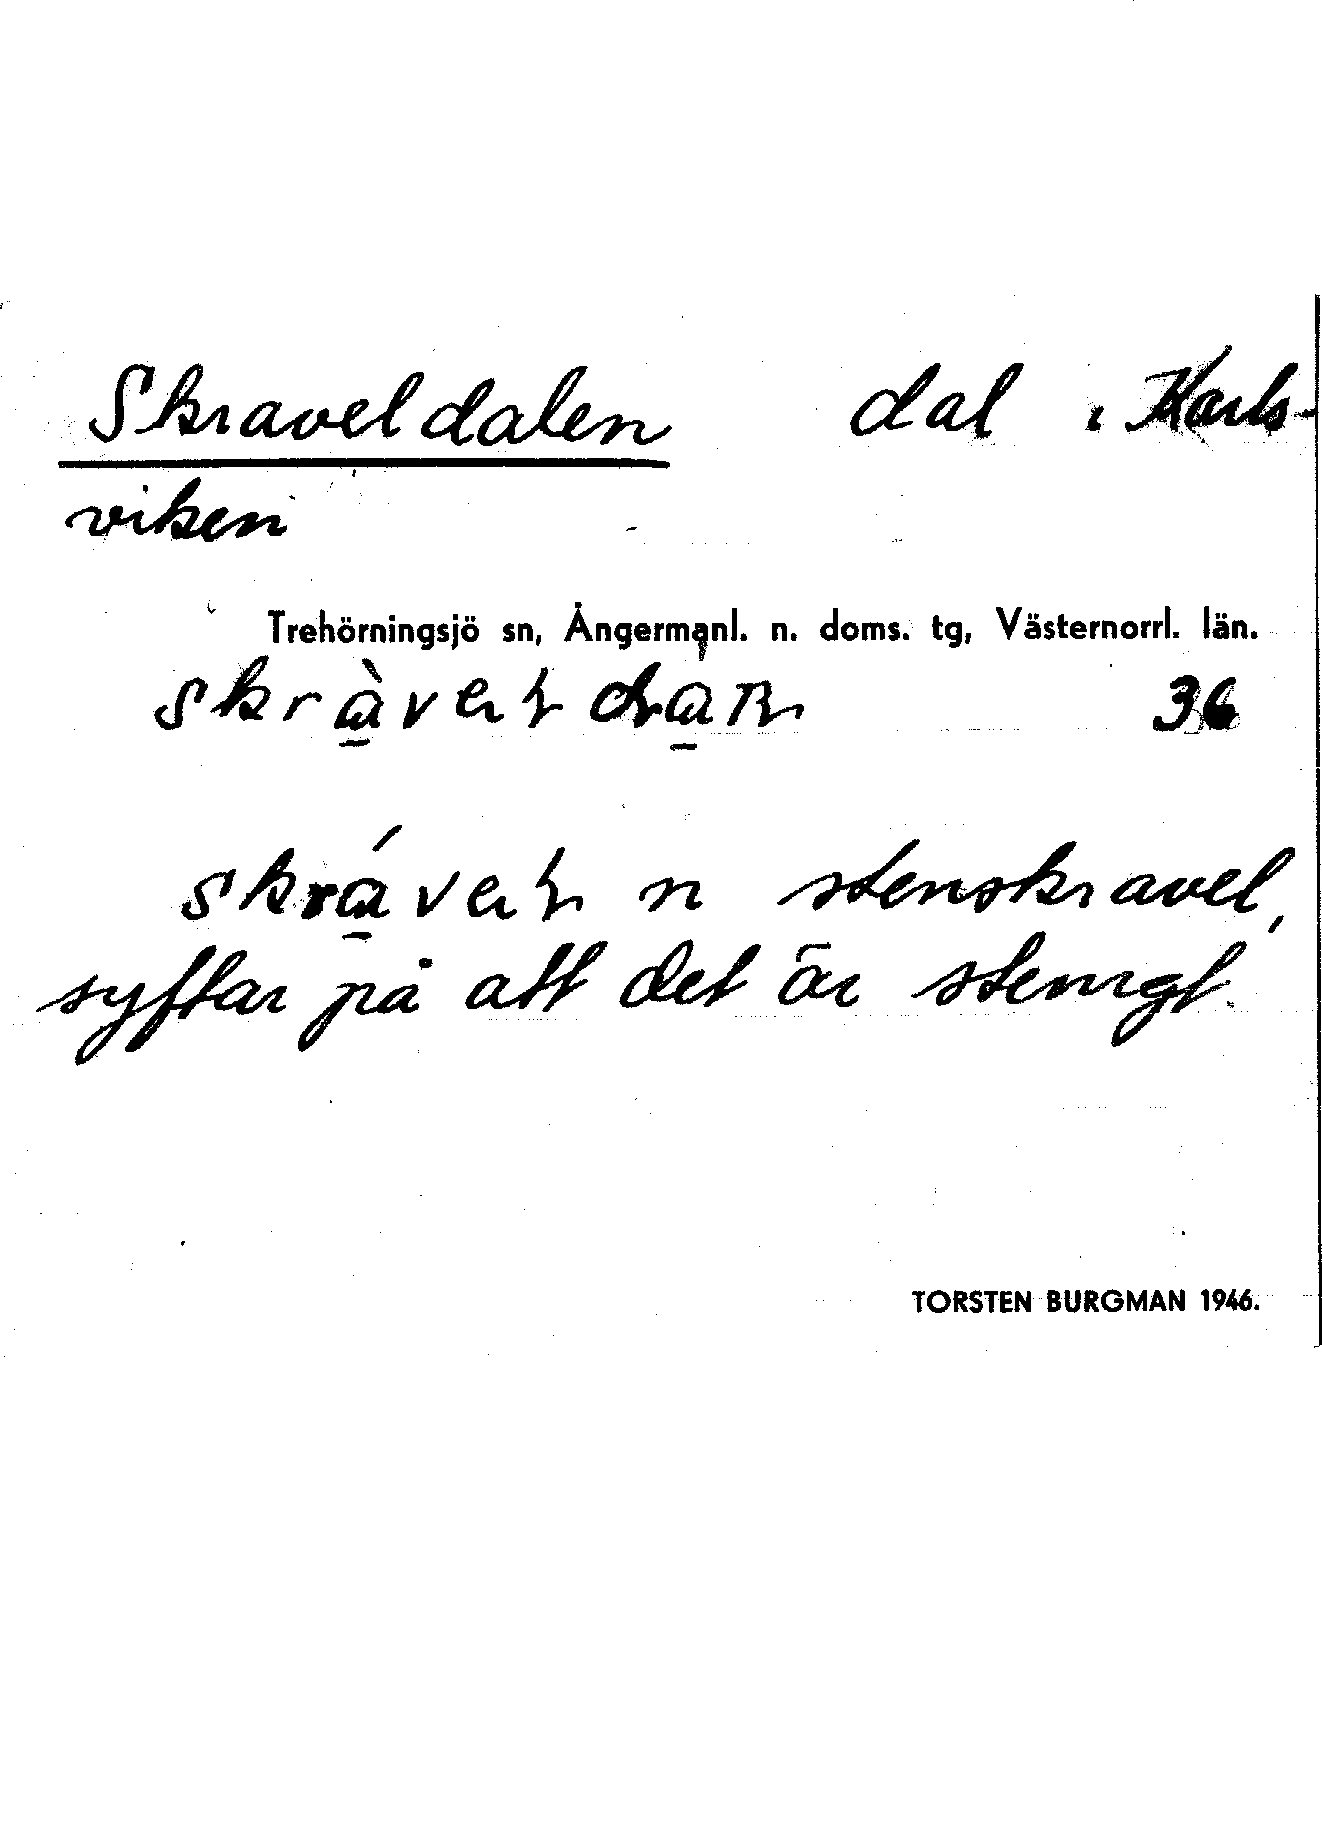 Skraveldalen dal i Karls-
viken
Trehörningsjö sn, Ångermanl. n. doms. tg, Västernorrl. län.
36
n stenskravel,
syftar på att det är stenigt
TORSTEN BURGMAN 1946.